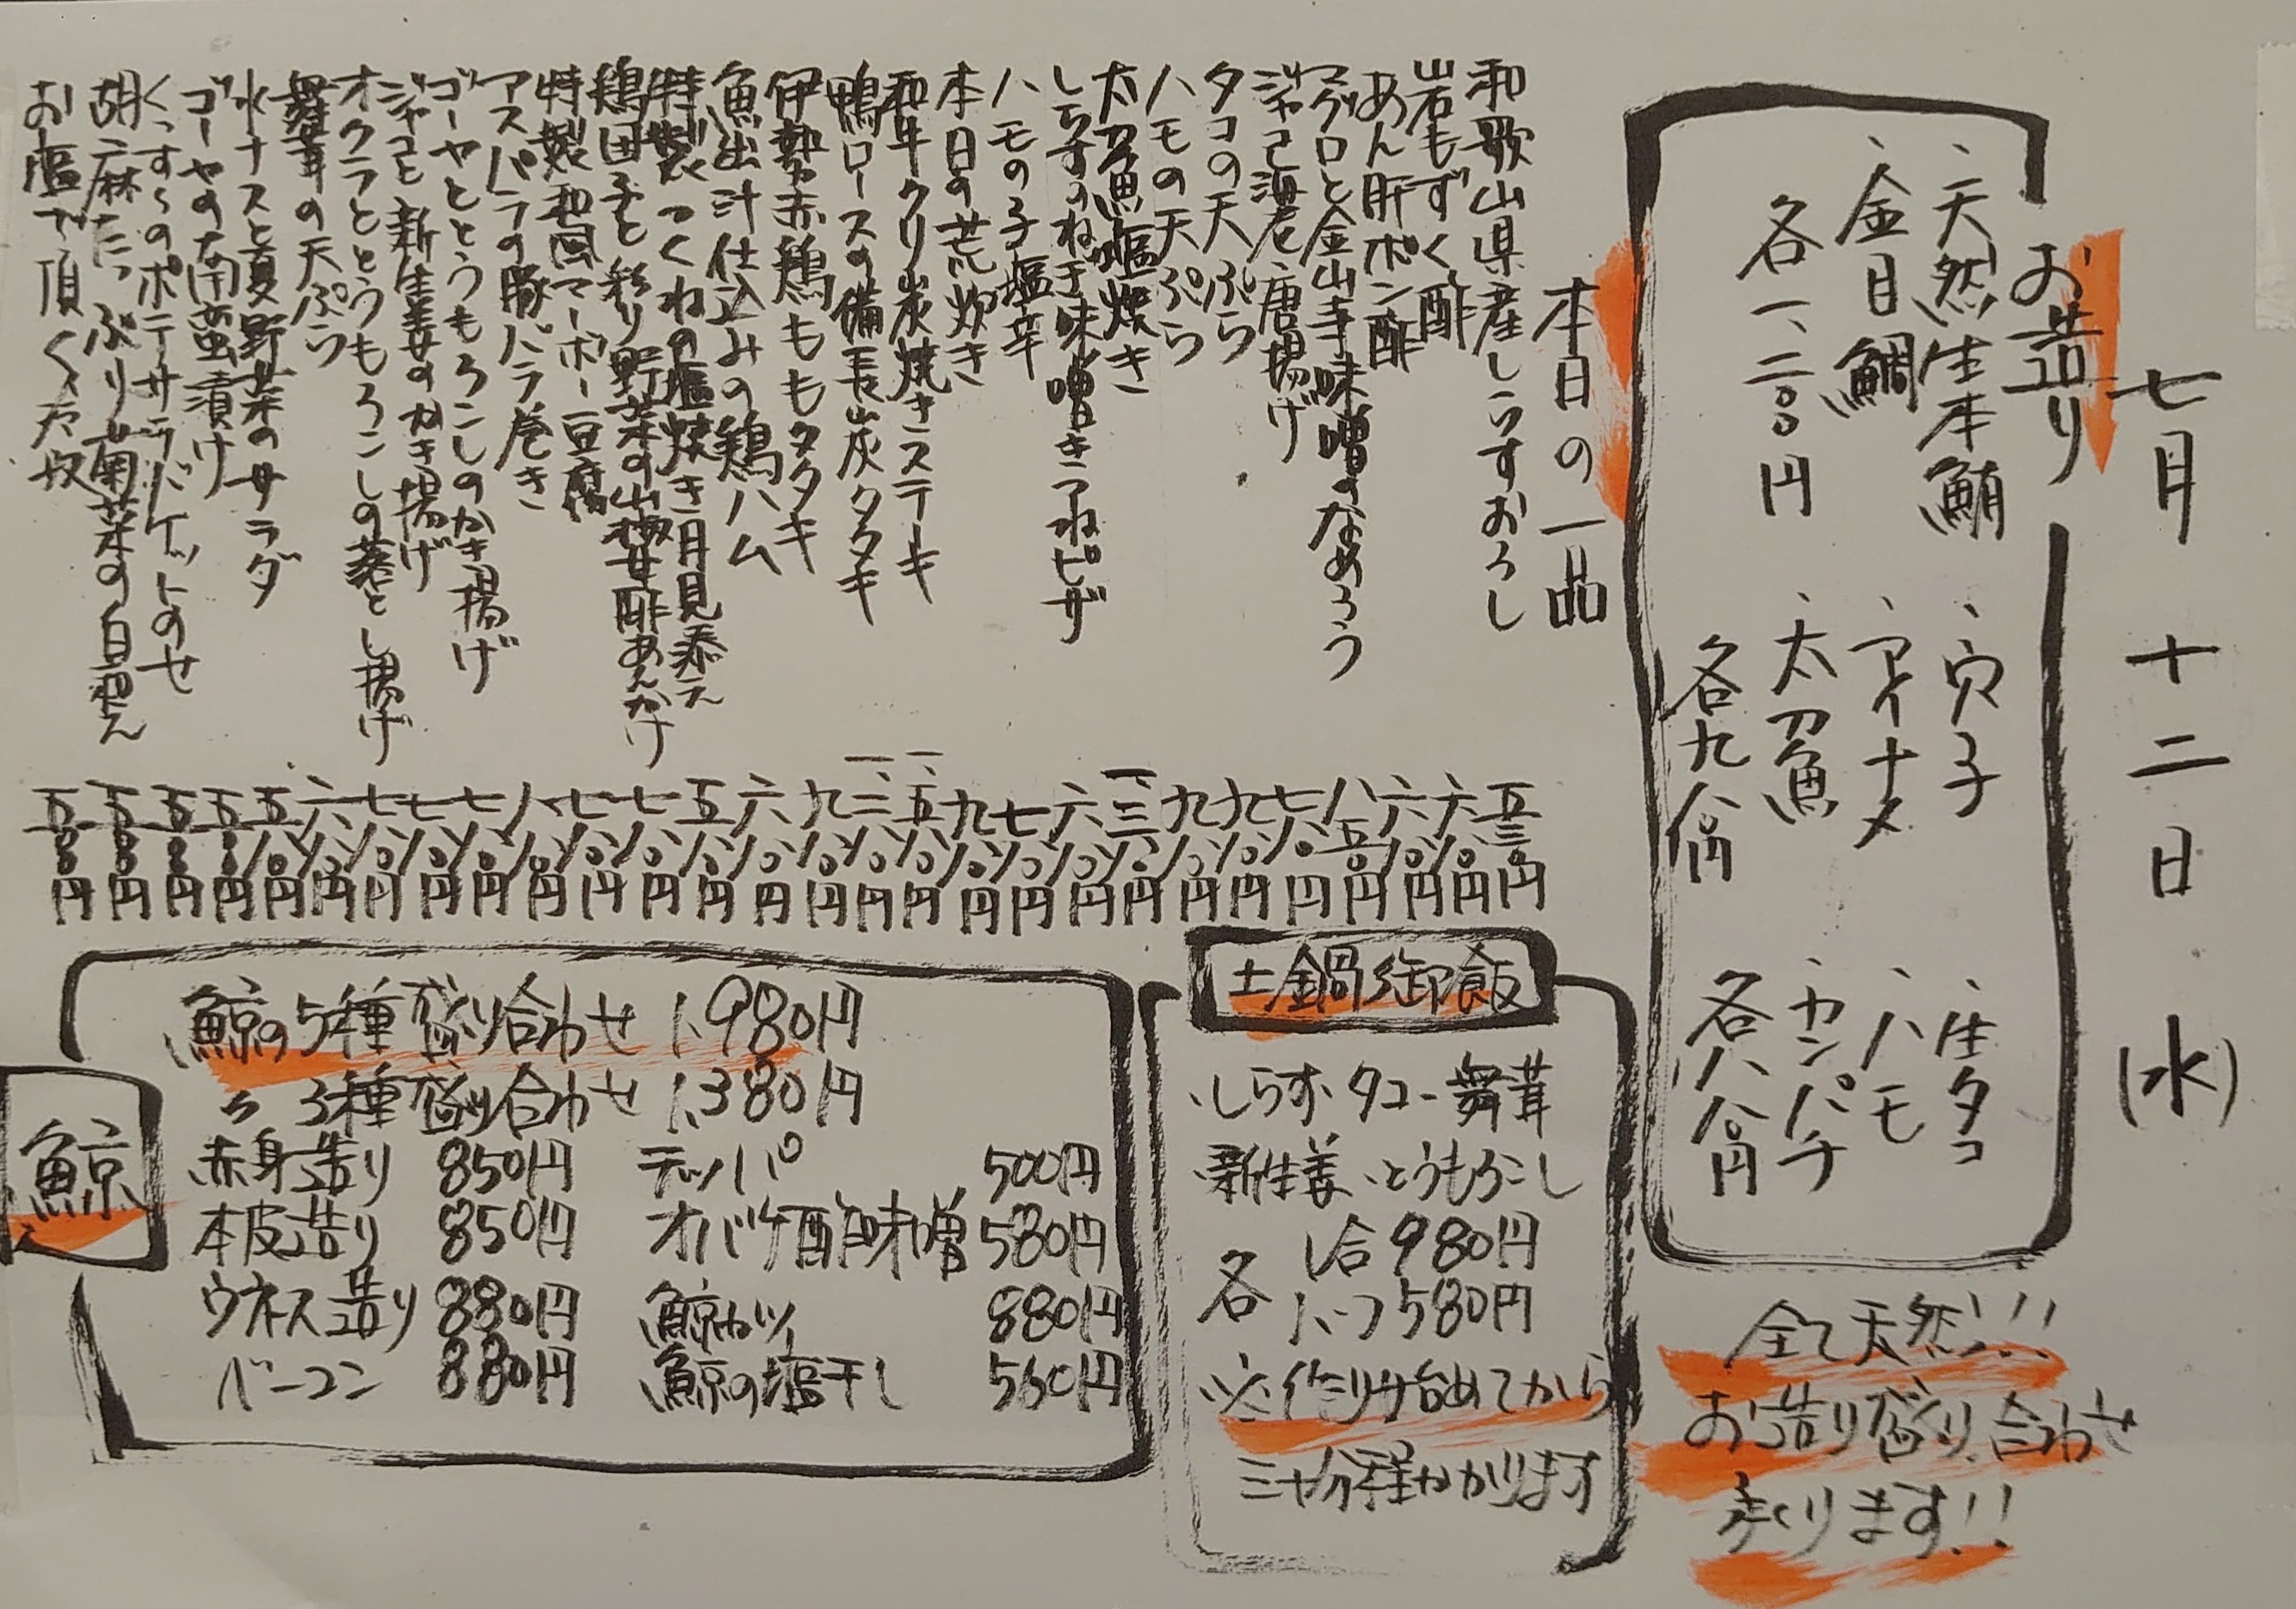 七月十二日(水)
お造り
、天然生本鮪
、金目鯛
各一、二〇〇円
、穴子
、アイナメ
、太刀魚
各九八〇円
、生タコ
、ハモ
、カンパチ
各八八〇円
全て天然!!!
お造り盛り合わせ
承ります!!
本日の一品
和歌山県産しらすおろし 五三〇円
岩もずく酢 六八〇円
あん肝ポン酢 六八〇円
マグロと金山寺味噌のなめろう 八五〇円
ジャコ海老唐揚げ 七八〇円
タコの天ぷら 九八〇円
ハモの天ぷら 九八〇円
太刀魚塩焼き 一、三八〇円
しらすのねぎ味噌きつねピザ 六八〇円
ハモの子塩辛 七八〇円
本日の荒炊き 九八〇円
和牛クリ炭焼きステーキ 一、五八〇円
鴨ロースの備長炭タタキ 一、三八〇円
伊勢赤鶏ももタタキ 九八〇円
魚出汁仕込みの鶏ハム 六八〇円
特製つくねの塩焼き月見添え 五八〇円
鶏団子と彩り野菜の山椒甘酢あんかけ 七八〇円
特製和風マーボー豆腐 七八〇円
アスパラの豚バラ巻き 八八〇円
ゴーヤととうもろこしのかき揚げ 七八〇円
ジャコと新生姜のかき揚げ 七八〇円
オクラととうもろこしの落とし揚げ 七八〇円
舞茸の天ぷら 六八〇円
水ナスと夏野菜のサラダ 五八〇円
ゴーヤの南蛮漬け 五〇〇円
くっす〜のポテサラバケットのせ 五八〇円
胡麻たっぷり菊菜の白和え 五〇〇円
お塩で頂く冷奴 五〇〇円
土鍋御飯
、しらす、タコ、舞茸
新生姜、とうもろこし
各 1合980円
1/2つ580円
※作り始めてから
三十分程かかります
鯨
鯨の5種盛り合わせ 1,980円
〃 3種盛り合わせ 1,380円
赤身造り 850円
本皮造り 850円
ウネス造り 880円
ベーコン 880円
テッパ 500円
オバケ酢味噌 580円
鯨カツ 880円
鯨の塩干し 560円